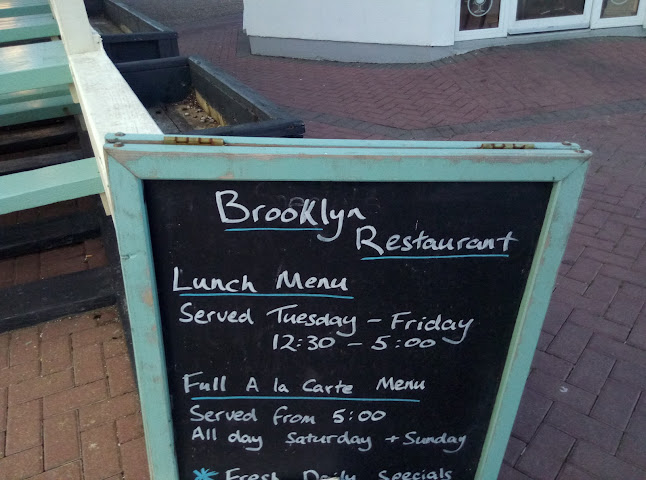 Brooklyn
Restaurant
Lunch Menu
Served Tuesday - Friday
12:30 - 5:00
Full A la Carte Menu
Served from 5:00
All day Saturday + Sunday
* Fresh Daily Specials